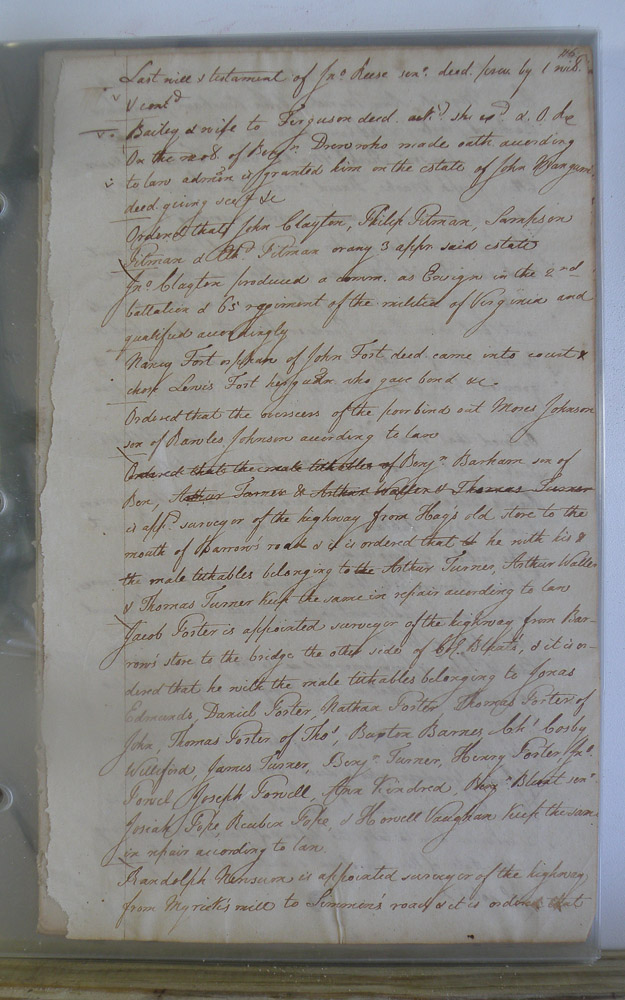 46
Last will & testament of Jno. Reese senr. decd. prov. by 1 witss.
& contd
Bailey & wife to Ferguson deed ackd. she exd & O Re
On the mo. of Benjn. Drew who made oath according
to law admon is granted him on the estate of John Wangum
decd. giving sect &c
Ordered that John Clayton, Philip Pitman, Sampson
Pitman & Pitman or any 3 appr. said estate
Jno. Clayton produced a comm. as Ensign in the 2nd
battalion & 65 regiment of the militia of Virginia and
qualified accordingly
Nancy Fort orphan of John Fort decd. came into court &
chose Lewis Fort her guan. who gave bond &c
Ordered that the overseers of the poor bind out Moses Johnson
son of Rawles Johnson according to law
Ordered that the male tithables of Benjn. Barham son of
Ben, Arthur Turner & Arthur Waller & Thomas Turner
is appd. surveyor of the highway from Hag's old store to the
mouth of Barrow's road & it is ordered that he with his &
the male tithables belonging to the Arthur Turner, Arthur Waller
& Thomas Turner keep the same in repair according to law
Jacob Forter is appointed surveyor of the highway from Bar-
row's store to the bridge the other side of Col. Blunt's, & it is or-
dered that he with the male tithables belonging to Jonas
Edmunds, Daniel Forter, Nathan Forter Thomas Forter of
John, Thomas Forter of Thos., Buxton Barnes, Chs. Cosby
Williford, James Turner, Benjn. Turner, Henry Forter, Jno.
Powel Joseph Powell, Ann Kindred, Benjn. Blunt senr.
Josiah Pope, Reuben Pope, & Howell Vaughan keep the same
in repair according to law
Randolph Newsum is appointed surveyor of the highway
from Myrick's mill to Simmon's road & it is ordered that